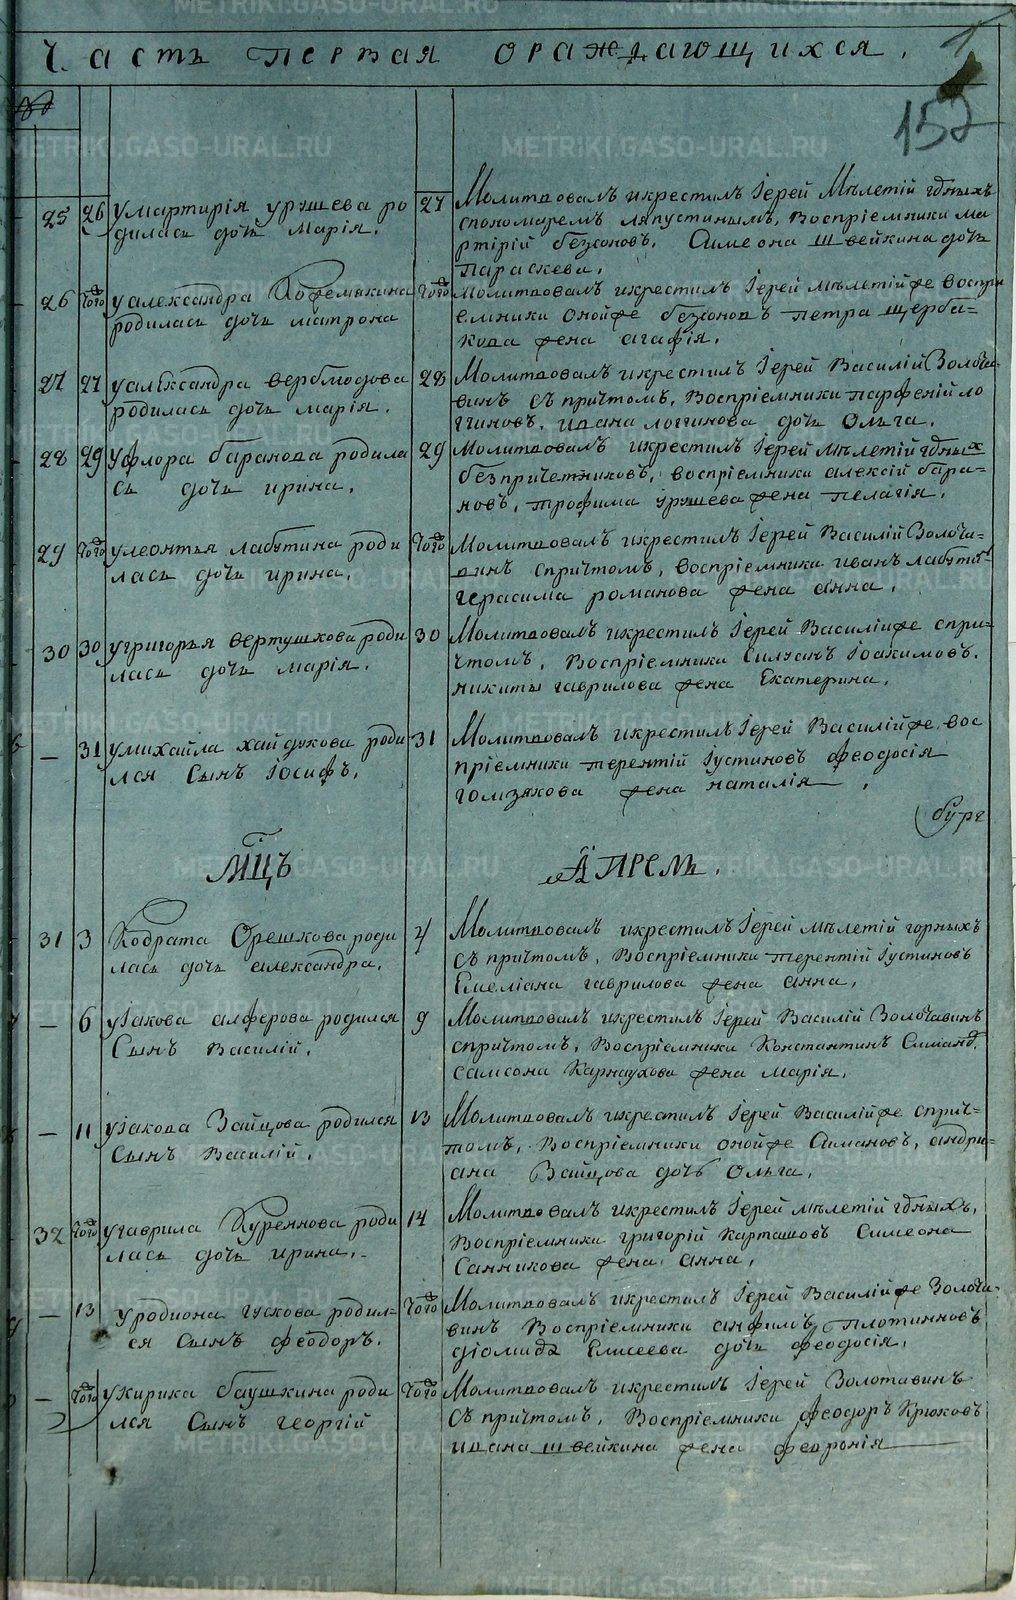 METRIKI.GASO-URAL.RU
METRIKI.GASO-URAL.RU
Часть первая ораждающихся.
1
152
METRIKI.GASO-URAL.RU
METRIKI.GASO-URAL.RU
25 26 умартирія урушева ро
дилась дочь Марія.
27 Молитвовалъ икрестилъ Іерей Мѣлетій гдныхъ
спономаремъ ляпустинымъ, воспріемники ма
ртірій безсоновъ. Симеона швейкина дочь
параскева.
26 тогѡ уалександра Кофемякина
родилась дочь матрона
тогѡ Молитвовалъ икрестилъ Іерей мѣлетійже воспри
емники онойже безсоновъ петра щерба=
кова жена агафія.
27 27 уалександра вермодова
родилась дочь марія.
28 Молитвовалъ икрестилъ Іерей Василій Золоча
винъ съ причтомъ, воспріемники парфеній ло
ггиновъ, ивана логгинова дочь Ольга.
28 29 уфлора баранова родила
сь дочь ирина.
29 Молитвовалъ икрестилъ Іерей мѣлетій гдныхъ
безпричетниковъ, воспріемники алексій бара=
новъ, трофима урушева жена пелагія.
29 тогѡ улеонтья лабутина роди
лась дочь ирина.
тогѡ Молитвовалъ икрестилъ Іерей Василій Золоча=
винъ спричтомъ, воспріемники иванъ лабути
герасима романова жена анна.
30 30 угригорья вертушкова роди
лась дочь марія.
30 Молитвовалъ икрестилъ Іерей Василиже спри=
чтомъ, воспріемники Силуанъ Іоакимовъ.
никиты гаврилова жена Екатерина.
— 31 умихайла хайдукова роди
лся сынъ Іосифъ.
31 Молитвовалъ икрестилъ Іерей Василійже, вос
пріемники терентій Іустиновъ феодосія
голзякова жена наталія.
бург
МЦЪ АПРЕЛЬ.
31 3 Кодрата Орешкова роди
лась дочь александра.
4 Молитвовалъ икрестилъ Іерей мѣлетій горныхъ
съ причтомъ, воспріемники терентій Іустиновъ
Емеліана гаврилова жена анна.
— 6 уІакова алферова родился
сынъ Василій.
9 Молитвовалъ икрестилъ Іерей Василій Золочавинъ
спричтомъ, воспріемники Константинъ
самсона Карнаухова жена марія.
— 11 уІакова Зайцова родился
сынъ Василій.
13 Молитвовалъ икрестилъ Іерей Василійже сприч=
томъ, воспріемники онойже Симановъ, андри=
ана Зайцова дочь Ольга.
32 тогѡ угаврила Куреннова роди
лась дочь ирина.
14 Молитвовалъ икрестилъ Іерей мѣлетій гдныхъ,
воспріемники григорій Карташовъ Симеона
Санникова жена анна.
— 13 уродиона гускова родил=
ся сынъ феодоръ.
тогѡ Молитвовалъ икрестилъ Іерей Василійже Золоча=
винъ воспріемники анфимъ плотинновъ
діомида Елисеева дочь феодосія.
— тогѡ укирика баушкина роди
лся сынъ георгій
тогѡ Молитвовалъ икрестилъ Іерей Золотавинъ
съ причтомъ, воспріемники феодоръ Крюковъ
ивана швейкина жена февронія
METRIKI.GASO-URAL.RU
METRIKI.GASO-URAL.RU